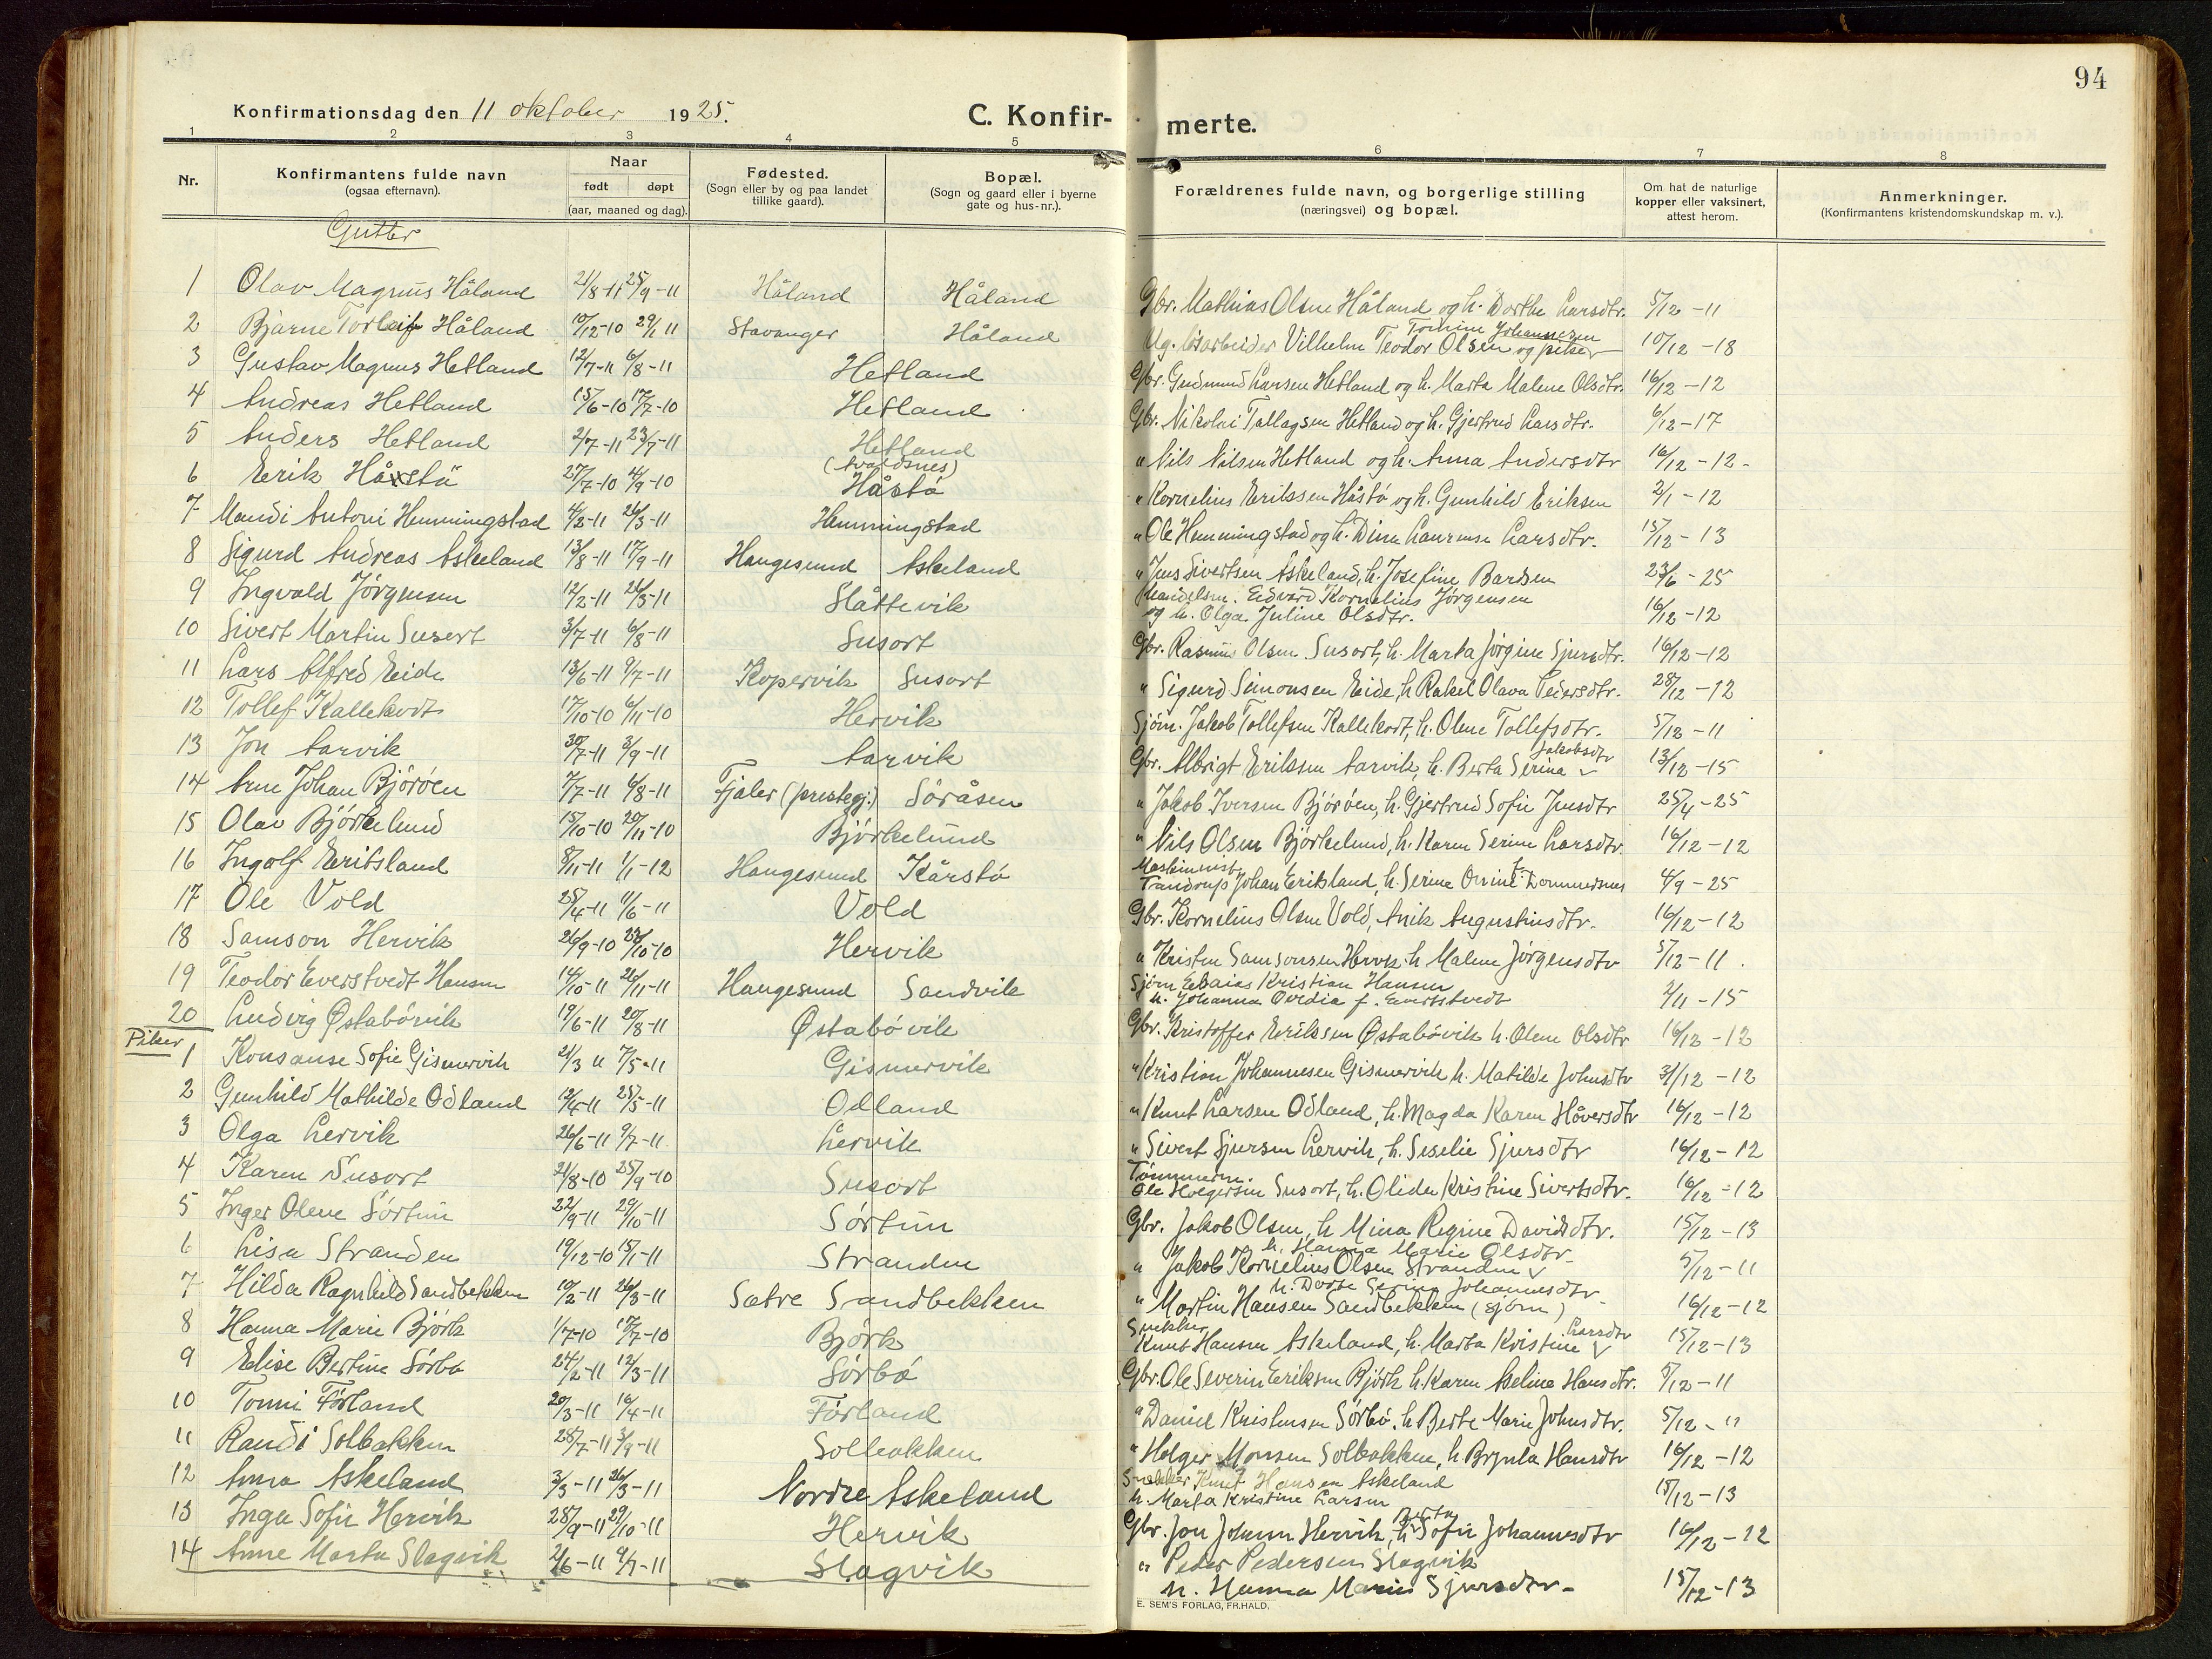 94
Konfirmationsdag den 11 oktober 1925.
C. Konfir- merte.
1 2 3 4 5 6 7 8
Nr. Konfirmantens fulde navn (ogsaa efternavn). Naar født døpt (aar, maaned og dag). Fødested. (Sogn eller by og paa landet tillike gaard). Bopæl. (Sogn og gaard eller i byerne gate og hus-nr.). Forældrenes fulde navn, og borgerlige stilling (næringsvei) og bopæl. Om hat de naturlige kopper eller vaksinert, attest herom. Anmerkninger. (Konfirmantens kristendomskundskap m. v.).
Gutter
1 Olav Magnus Håland 21/8-11 25/9-11 Håland Håland Gbr. Mathias Olsen Håland og h. Dorthe Larsdtr. 5/12-11
2 Bjarne Torleif Håland 10/12-10 29/1 11 Stavanger Håland Ug. løsarbeider Vilhelm Teodor Olsen og pike Tomine Johannesen 10/12-18
3 Gustav Magnus Hetland 12/7-11 6/8-11 Hetland Gbr. Gudmund Larsen Hetland og h. Marta Malene Olsdtr. 16/12-12
4 Andreas Hetland 15/6-10 17/7-10 Hetland Gbr. Nikolai Tallagsen Hetland og h. Gjertrud Larsdtr. 6/12-17
5 Anders Hetland 2/7-11 23/7-11 Hetland " Nils Nilsen Hetland og h. Anna Andersdtr 16/12-12-
6 Erik Håstø 27/7-10 4/9-10 (Avaldsnes) Håstø " Kornelius Erikssen Håstø og h. Gunhild Eriksen 2/1-12
7 Mandi Antoni Hemmingstad 4/2-11 26/3-11 Hemmingstad " Ole Hemmingstad og h. Dina Laurense Larsdtr. 15/12-13
8 Sigurd Andreas Askeland 13/8-11 17/9-11 Haugesund Askeland " Jens Sivertsen Askeland, h. Josefine Bardsen 23/6-25
9 Ingvald Jørgensen 12/2-11 26/3-11 Slåttevik Handelsm. Edvard Kornelius Jørgensen og h. Olga Juline Olsdtr. 16/12-12
10 Sivert Martin Susort 3/7-11 6/8-11 Susort Gbr. Rasmus Olsen Susort, h. Marta Jørgine Sjursdtr. 16/12-12
11 Lars Alfred Eide 13/6-11 9/7-11 Kopervik Susort " Sigurd Simonsen Eide, h Rakel Olava Peiersdtr. 28/12-12
12 Tollef Kallekodt 17/10-10 6/11-10 Hervik Sjøm. Jakob Tollefsen Kallekodt, h. Olene Tollefsdtr. 5/12-11
13 Jon Aarvik 30/7-11 3/9-11 Aarvik Gbr. Albrigt Eriksen Aarvik, h. Berta Serina Jakobsdtr 13/12-15
14 Arne Johan Bjørøen 7/7-11 6/8-11 Fjaler (prestegj.) Søråsen " Jakob Iversen Bjørøen, h. Gjertrud Sofie Jensdtr 25/4-25
15 Olav Björkelund 15/10-10 20/11-10 Björkelund " Nils Olsen Björkelund, h. Karen Serine Larsdtr. 16/12-12
16 Ingolf Eritsland 8/11-11 1/1-12 Haugesund Kårstø Maskinmist. Johan Eriksland, h. Serine 4/9-25
17 Ole Vold 25/4-11 11/6-11 Vold Gbr. Kornelius Olsen Vold, Anik Augustinusdtr. 16/12-12
18 Samson Hervik 26/9-10 23/10-10 Hervik " Kristen Samsonsen Hervik h Malene Jørgensdtr 5/12-11.
19 Teodor Everstvedt Hansen 14/10-11 26/11-11 Haugesund Sandvik Sjøm Esaias Kristian Hansen h. Johanna Ovidia f. Evertstvedt 2/11-15
20 Ludvig Østabövik 19/6-11 20/8-11 Østabövik Gbr. Kristoffer Eriksen Østabövik h. Olene Olsdtr 16/12-12
Piker
1 Konsanse Sofie Gismervik 21/3 11 7/5-11 Gismervik " Kristian Johannesen Gismervik h. Matilde Johnsdtr 31/12-12
2 Gunhild Mathilde Odland 12/4-11 25/5-11 Odland " Knut Larsen Odland, h. Magda Karen Håversdtr 16/12-12
3 Olga Lervik 26/6-11 9/7-11 Lervik " Sivert Sjursen Lervik, h. Seselie Sjursdtr 16/12-12
4 Karen Susort 21/8-10 25/9-10 Susort Tømmerm. Ole Holgersen Susort, h. Olida Kristine Sivertsdtr. 16/12-12
5 Inger Olene Sörtun 22/9-11 29/10-11 Sörtun Gbr. Jakob Olsen, h Mina Regine Davidsdtr. 15/12-13
6 Lisa Stranden 19/12-10 15/1-11 Stranden " Jakob Kornelius Olsen Stranden h. Hanna Marie Olsdtr 5/12-11
7 Hilda Ragnhild Sandbekken 10/2-11 26/3-11 Sætre Sandbekken " Martin Hansen Sandbekken (sjøm) h. Dorte Serina Johannesdtr 16/12-12
8 Hanna Marie Björk 1/7-10 17/7-10 Björk Snekker Knut Hansen Askeland, h. Marta Kristine Larsdtr 15/12-13
9 Elise Bertine Sörbö 24/2-11 12/3-11 Sörbö Gbr. Ole Severin Eriksen Björk h. Karen Aseline Hansdtr. 5/12-11
10 Tomi Förland 20/3-11 16/4-11 Förland " Daniel Kristensen Sörbö, h Berte Marie Johnsdtr. 5/12-11
11 Randi Solbakken 28/7-11 3/9-11 Solbakken " Holger Monsen Solbakken, h Brynla Hansdtr 16/12-12
12 Anna Askeland 3/3-11 26/3-11 Nordre Askeland Snekker Knut Hansen Askeland h. Marta Kristine Larsen 15/12-13
13 Inga Sofie Hervik 28/9-11 29/10-11 Hervik Gbr. Jon Johnsen Hervik, h Berta Sofie Johannesdtr 16/12-12
14 Anne Marta Slagvik 2/6-11 9/7-11 Slagvik " Peder Pedersen Slagvik h. Hanna Marie Sjursdtr- 15/12-13
E. SEM'S FORLAG, FR.HALD.